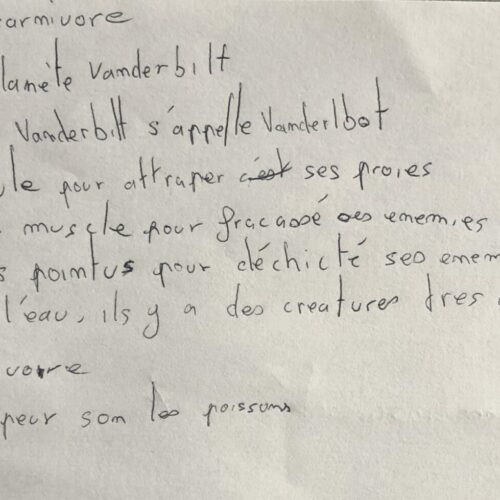 carnivore
lanète Vanderbilt
Vanderbilt s'appelle Vanderlbot
le pour attraper c'est ses proies
muscle pour fracassé ses enemies
s pointus pour déchicté ses enem
l'eau, ils y a des creatures tres
vore
peur som les poissons